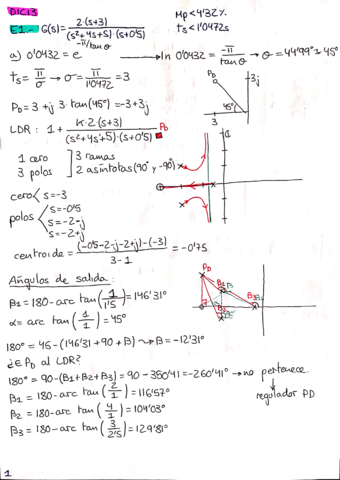 DIC13
E1.- G(s) = 2(s+3) / (s²+4s+5)·(s+0'5)
Mp<4'32%
ts<1'0472s
a) 0'0432 = e^(-π/tanθ) → ln 0'0432 = -π/tanθ → θ = 44'99° ≃ 45°
ts = π/σ → σ = π/1'0472 = 3
PD = 3 + j 3·tan(45°) = -3+3j
PD 3j
45°
3
LDR: 1 + K·2(s+3) / (s²+4s+5)·(s+0'5) PD
1 cero ] 3 ramas
3 polos ] 2 asíntotas (90° y -90°)
cero < s=-3
polos < s=-0'5
s=-2-j
s=-2+j
centroide = (-0'5-2-j-2+j)-(-3) / 3-1 = -0'75
Ángulos de salida:
β1 = 180 - arc tan(1/1'5) = 146'31°
α = arc tan(1/1) = 45°
180° = 45 - (146'31 + 90 + β) → β = -12'31°
PD
β2 β3
¿∈ PD al LDR?
180° = 90 - (β1+β2+β3) = 90 - 350'41 = -260'41° → no pertenece.
regulador PD
β1 = 180 - arc tan(2/1) = 116'57°
β2 = 180 - arc tan(4/1) = 104'03°
β3 = 180 - arc tan(3/2'5) = 129'81°
1